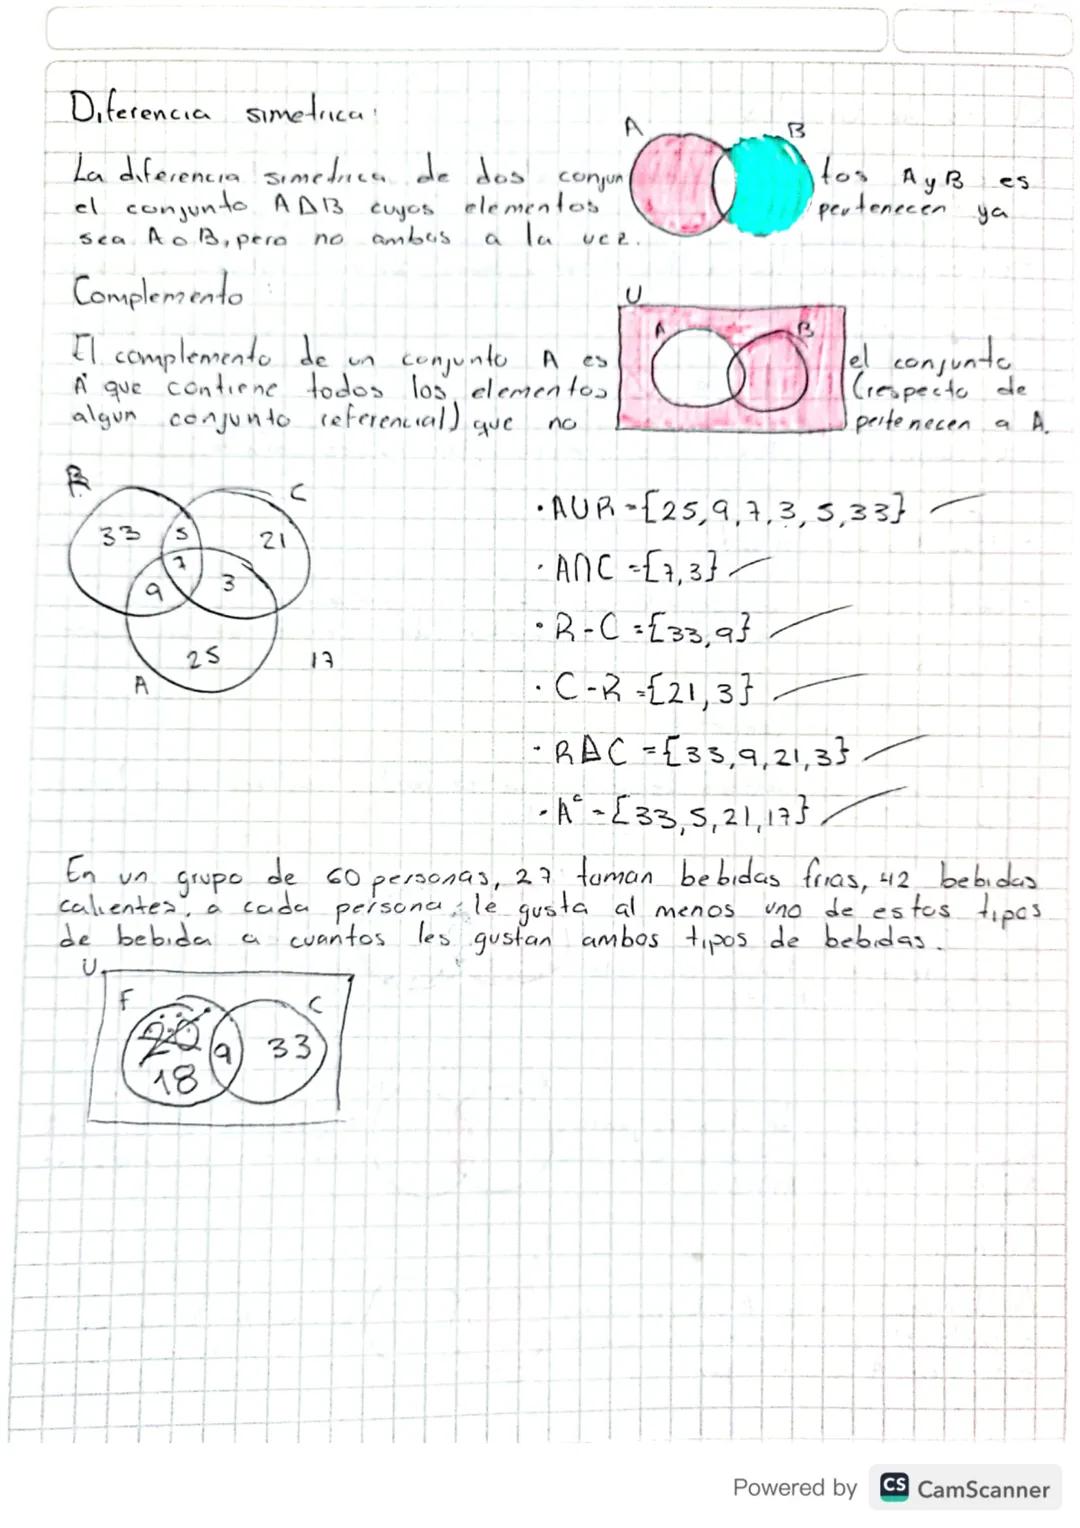 Diferencia simetrica:
A B
La diferencia simetrica de dos conjun tos A y B es
el conjunto A∆B cuyos elementos pertenecen ya
sea A o B, pero no ambas a la vez.
Complemento
U
A B
El complemento de un conjunto A es el conjunto
A' que contiene todos los elementos (respecto de
algun conjunto referencial) que no pertenecen a A.
R C
33 5 21
7
9 3
25 17
A
·AUR={25,9,7,3,5,33}
·A∩C={7,3}
·R-C={33,9}
·C-R={21,3}
·R∆C={33,9,21,3}
·Aᶜ={33,5,21,17}
En un grupo de 60 personas, 27 toman bebidas frias, 42 bebidas
calientes, a cada persona le gusta al menos uno de estos tipos
de bebida a cuantos les gustan ambos tipos de bebidas.
U
F C
20 9 33
18
Powered by CS CamScanner